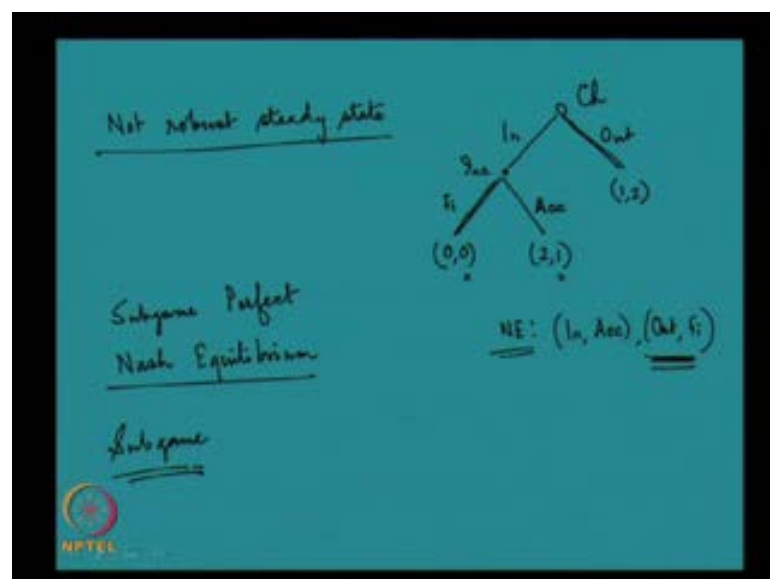 Not robust steady state
Ch
In
Out
Inc
(1,2)
Fi
Acc
(0,0)
(2,1)
Subgame Perfect
Nash Equilibrium
NE: (In, Acc), (Out, Fi)
Subgame
NPTEL